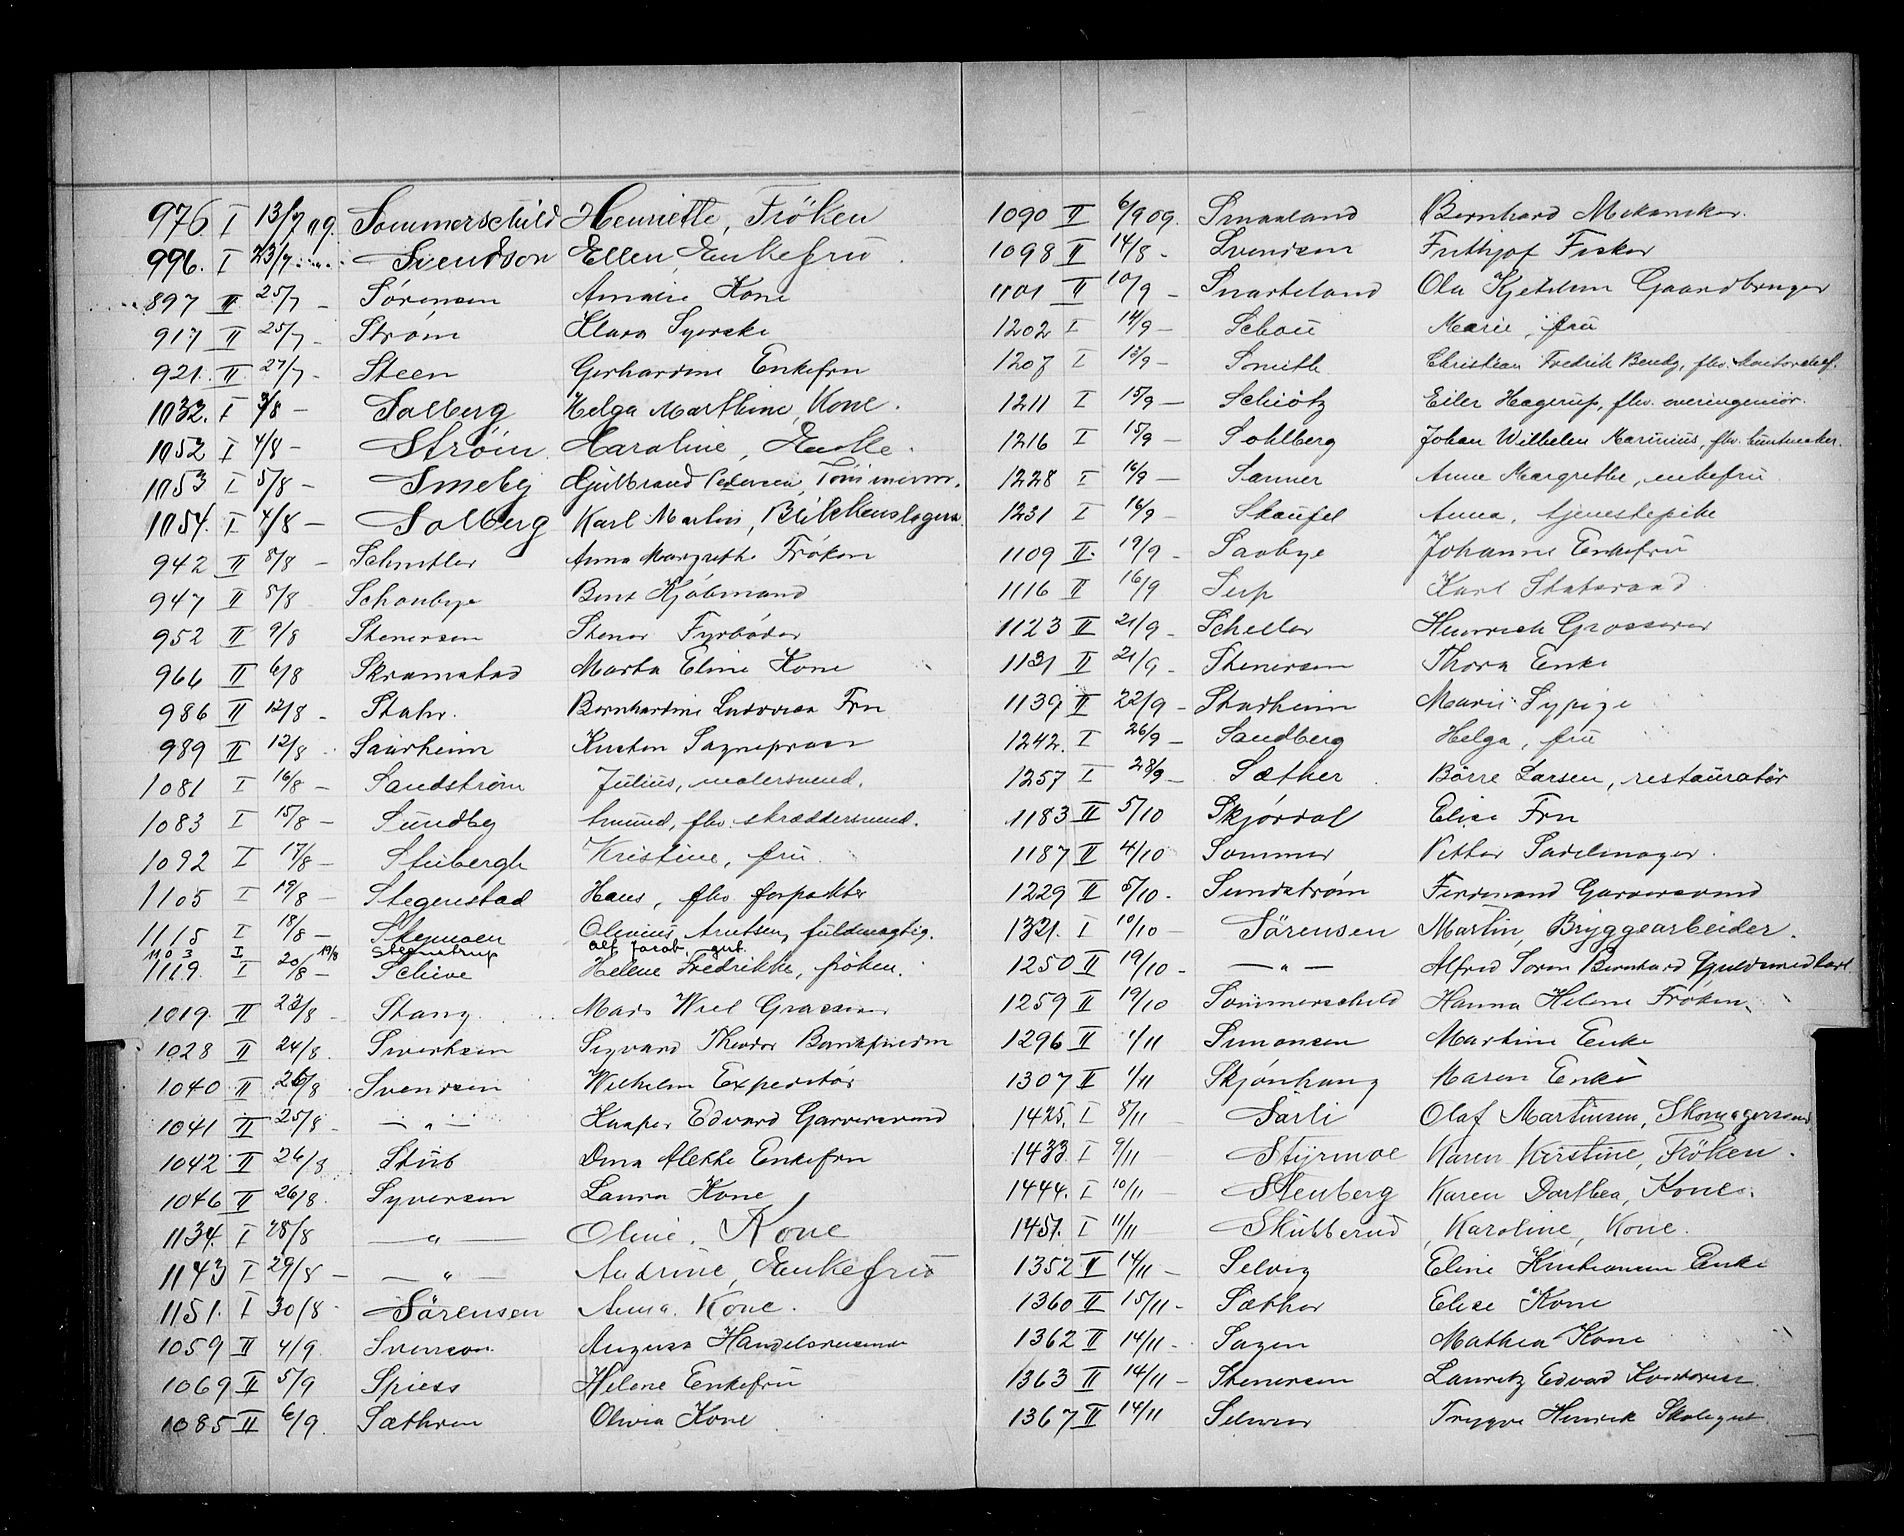 976. I 13/7 09. Sommerschild Henriette, Fröken
996. I 23/7 Svendson Ellen, Enkefru
897 II 25/7 - Sørensen Amalie Kone
917 II 25/7 - Strøm Klara Syerske
921. II 27/7 - Steen Gerhardine Enkefru
1032. I 3/8 - Solberg Helga Marthine, Kone.
1052 I 4/8 - Strøm Karoline, Enke.
1053 I 5/8 - Smeby Gulbrand Pedersen, Tömmerm.
1054. I 4/8 - Solberg Karl Martin, Blikkenslager
942 II 8/8 - Schmtler Anna Margrethe Frøken
947 II 8/8 Schouby Bent Kjøbmand
952 II 9/8 Stenersen Stener Fyrbøder
966 II 6/8 Skramstad Marta Eline Kone
986 II 12/8 - Stahr. Bernhardine Ludovica Fru
989 II 12/8 - Saurheim Kristen Sagnepræst
1081 I 16/8 - Sandstrøm Julius, malersvend.
1083 I 15/8 - Sundby Amund, fhv. skræddersvend.
1092 I 17/8 - Stubergh Kristine, fru.
1105 I 19/8 - Stegenstad Hans, fhv forpakter
1115 I 18/8 - Stenmoen Olinius Arntsen, fuldmægtig.
1103 I 19/8 Stenstrup Alf Jacob, gut.
1119. I 20/8 - Schive Helene Fredrikke, frøken.
1019. II 23/8 - Stang. Mads Wiel Grosserer
1028 II 24/8. Sivertsen Sigvard Theodor Bankfuldm
1040 II 26/8 Svendsen Wilhelm Expeditör
1041 II 25/8 - - " - Kasper Edvard Garversvend
1042 II 26/8 Stub Dina Alethe Enkefru
1046 II 26/8. Syversen Laura Kone
1134. I 28/8 - " - Oline. Kone
1143 I 29/8 - - " - Andrine, Enkefru
1151. I 30/8 - Sörensen Anna. Kone.
1059 II 4/9. Svenson August Handelsreisende
1069 II 5/9 Spiess Helene Enkefru
1085 II 6/9. Sæthren Olivia Kone
1090 II 6/9 09. Smaaland Bernhard Mekaniker.
1098 II 14/8 - Svendsen Frithjof Fisker
1101 II 10/9 - Snarteland Ola Kjetilsen Gaardbruger
1202 I 14/9 - Schou Marie, fru
1207 I 13/9 - Smith Christian Fredrik Bendz, fhv. kontorchef.
1211 I 15/9 - Schiötz Eiler Hagerup, fhv. overingeniör.
1216 I 15/9 - Sohlberg Johan Wilhelm Marinius, fhv. buntmaker.
1228 I 16/9 - Sanner Anne Margrethe, enkefru.
1231 I 16/9 - Skaufel Anna, tjenestepike
1109 II. 19/9 - Saxbye Johanne Enkefru
1116 II 16/9 Seip Karl Statsraad
1123 II 21/9 - Scheller Heinrich Grosserer
1131 II 21/9 - Stenersen Thora Enke
1139 II 22/9 - Starheim Marie Sypige
1242. I 26/9 - Sandberg Helga, fru
1257 I 28/9 - Sæther Börre Larsen, restauratör
1183 II 5/10 Skjørdal Elise Fru
1187 II 4/10 Sommer Petter Sadelmager.
1229 II 5/10. Sundstrøm Ferdinand Garversvend
1321. I 10/10 - Sörensen Martin, Bryggearbeider.
1250 II 19/10 - - " - Alfred Soren Bernhard Guldsmed
1259 II 19/10 Sommerschild Hanna Helene Frøken
1296 II 1/11 Simonsen Martine Enke
1307 II 1/11 Skjønhaug Maren Enke
1425. I 8/11 - Sarli Olaf Martinsen, Skomagersvend
1433. I 9/11 - Styrmoe Karen Kirstine, Fröken.
1444. I 10/11 - Stenberg Karen Dorthea, Kone.
1451. I 11/11 - Skubberud Karoline, Kone.
1352 II 14/11 - Selvig Eline Kristiansen Enke
1360 II 15/11 - Sæther Elise Kone
1362 II 14/11 - Sagen Mathea Kone
1363 II 14/11 - Stenersen Lauritz Edvard
1367 II 14/11 Selmer Trygve Henrik Skolegut.